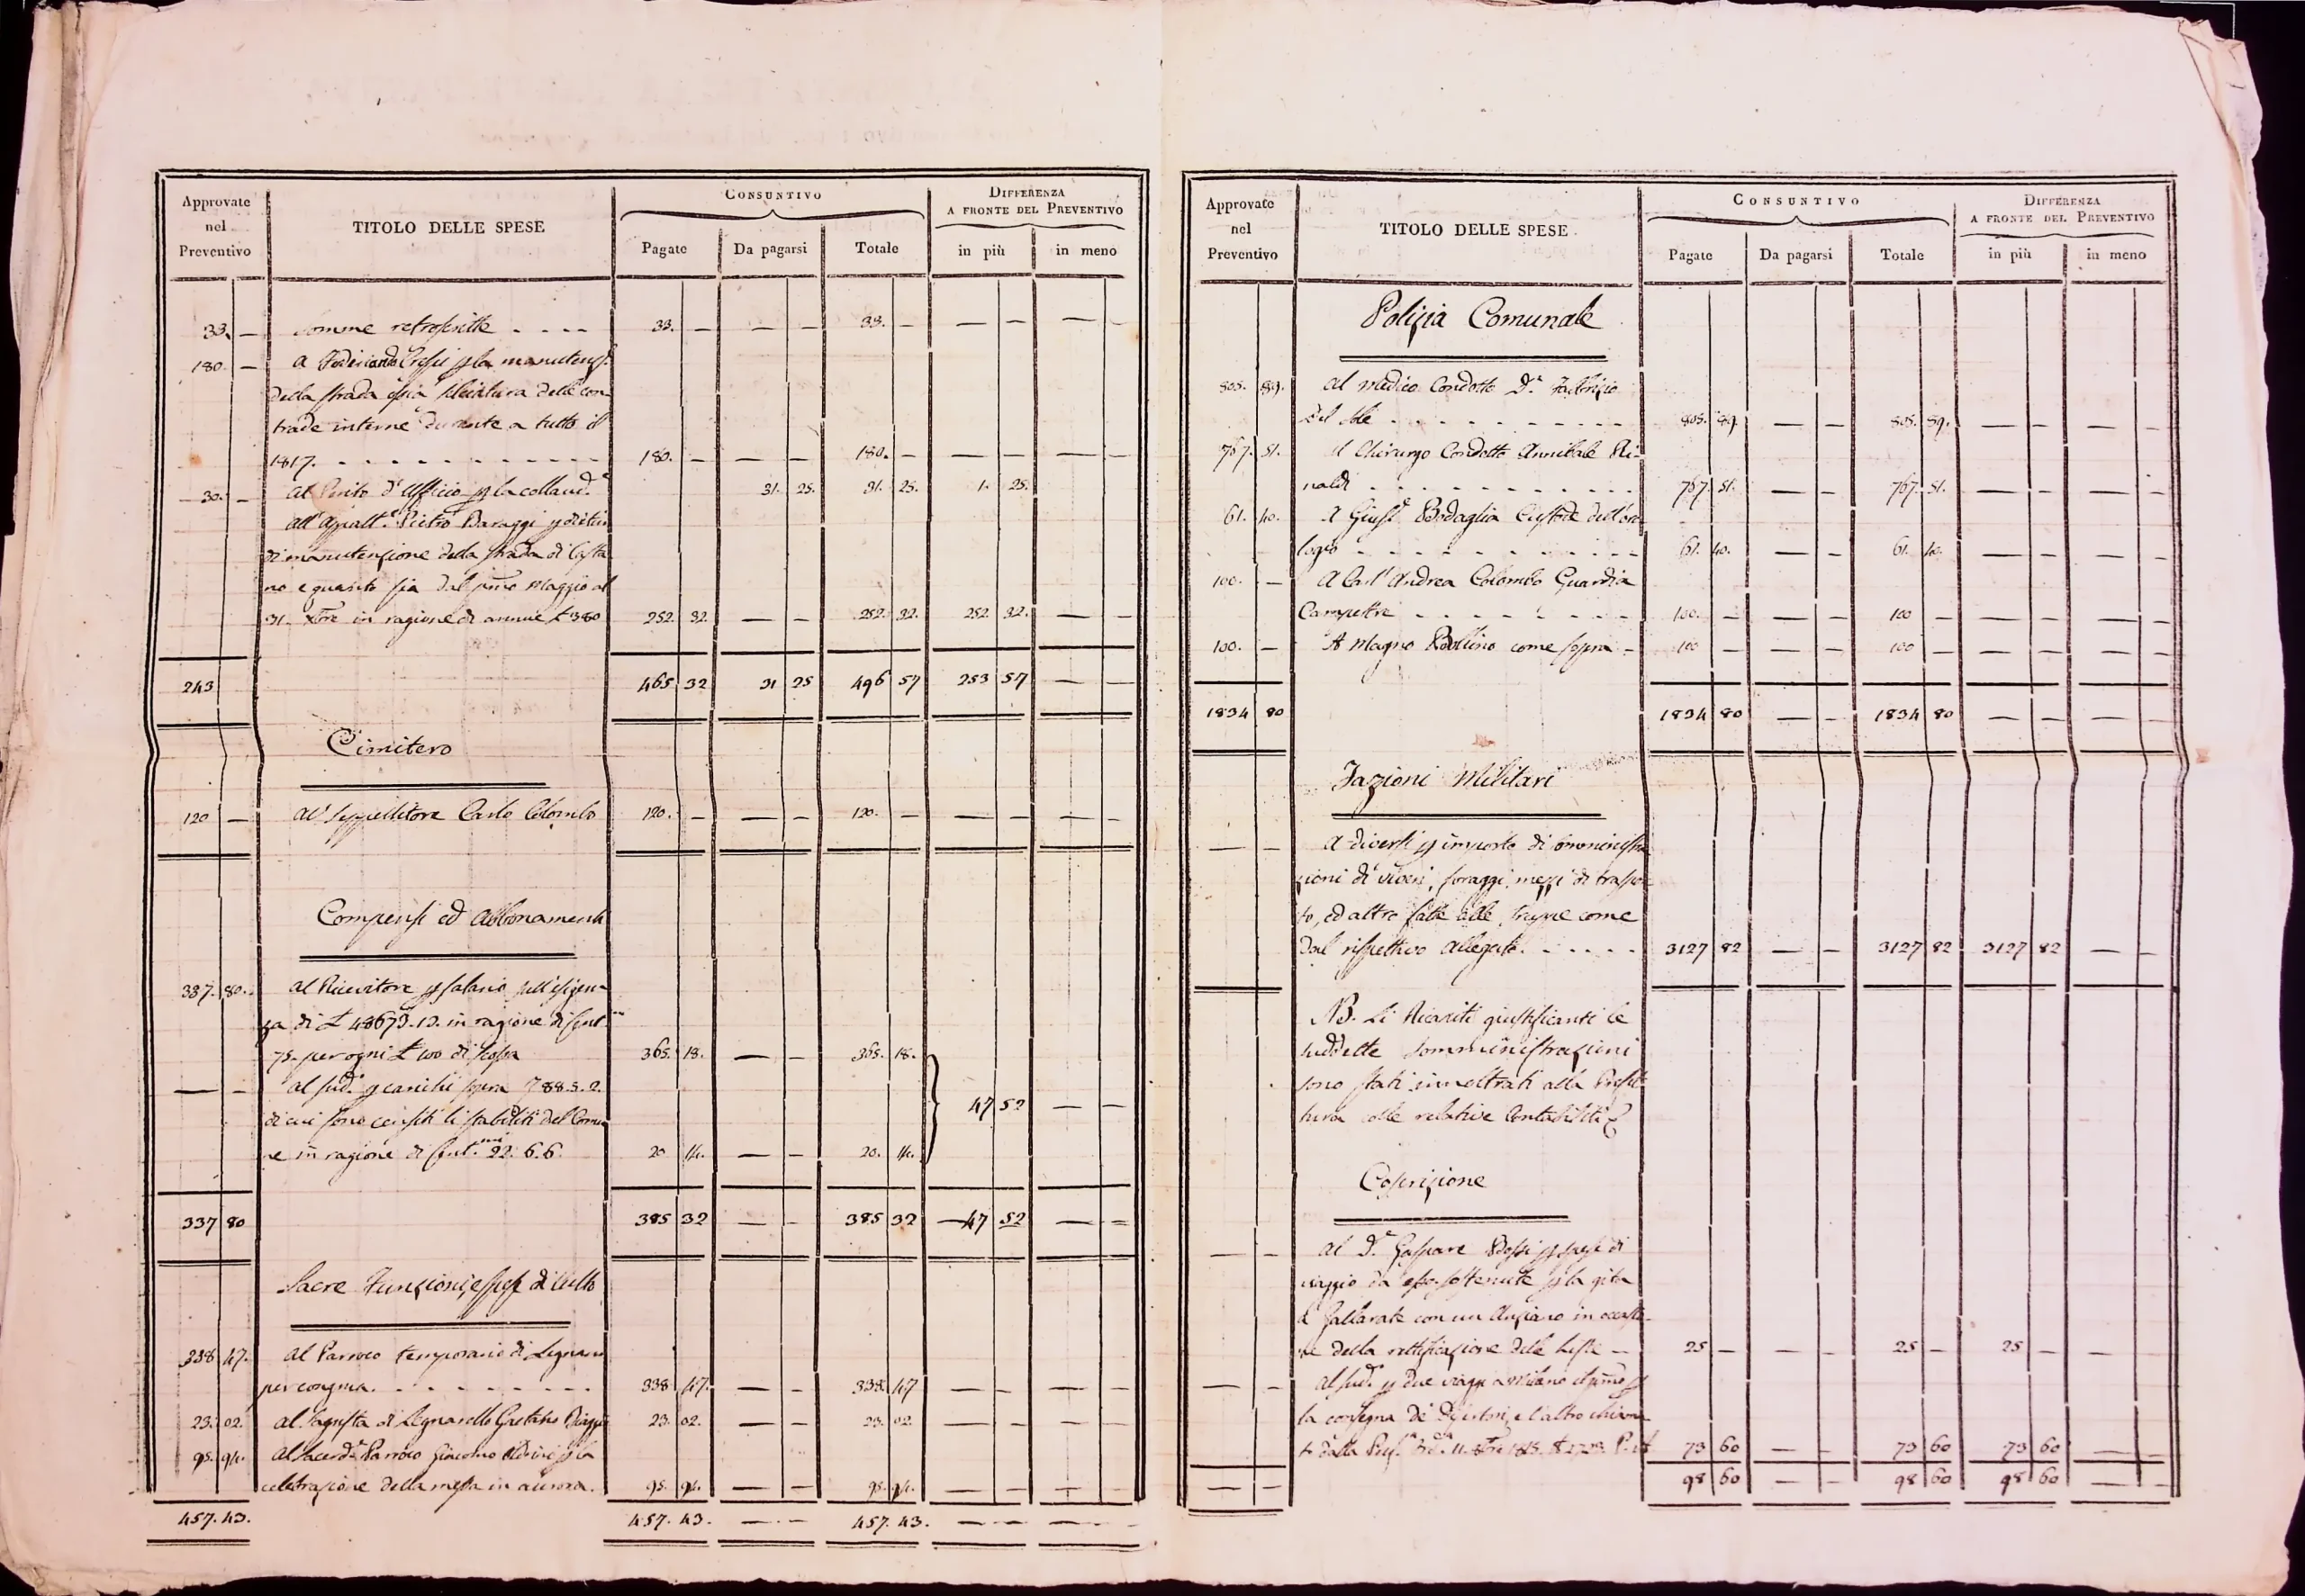 Approvate nel Preventivo | TITOLO DELLE SPESE | CONSUNTIVO | DIFFERENZA A FRONTE DEL PREVENTIVO
Pagate | Da pagarsi | Totale | in più | in meno
33. — Somme retroscritte . . . . 33. — — — 33. — — — — —
180. — A Crespi la manutenz.
della strada ossia selciatura delle con-
trade interne durante a tutto il
1817. - - - - - 180. — — — 180. — — — — —
30. — Al Perito d'Ufficio la collaud.e 31. 25. 31. 25. 1. 25.
all'Appalt.e Pietro Baraggi
di manutenzione della strada di Casta
no e questo sia dal primo Maggio al
31. Xbre in ragione di annue £ 380 252 32 — — 252. 32. 252 32. — —
243 465 32 31 25 496 57 253 57 — —
Cimitero
120 — Al Seppellitore Carlo Colombo 120. — — — 120. — — — — —
Compensi ed Abbonamenti
337. 80. Al Ricevitore salario sull'esigen-
za di £ 48673. 12. in ragione di Cent.mi
75. per ogni £ 100 di scossa 365. 18. — — 365. 18.
— — Al sud.o carichi sopra 788. 3. 2.
di cui sono censiti li stabiliti del Comu
ne in ragione di Cent.mi 22. 6. 6. 20 14. — — 20. 14. 47 52 — —
337 80 385 32 — — 385 32 — 47 52 — —
Sacre Funzioni, e spese di Culto
338 47. Al Parroco temporario di Legnano
per congrua. . . . . . 338 47. — — 338. 47 — — — —
23. 02. Al Sagrista di Legnarello Gaetano 23. 02. — — 23. 02 — — — —
95. 94. Al Sacerd.e Parroco Giacomo la
celebrazione della messa in aurora. 95. 94. — — 95. 94. — — — —
457. 43. 457. 43. — — 457. 43. — — — —
Approvate nel Preventivo | TITOLO DELLE SPESE | CONSUNTIVO | DIFFERENZA A FRONTE DEL PREVENTIVO
Pagate | Da pagarsi | Totale | in più | in meno
Polizia Comunale
805. 89. Al Medico Condotto D.r Fabrizio
Del . . . . . 805. 89. — — 805. 89. — — — —
767. 51. Al Chirurgo Condotto Annibale Ri-
naldi . . . . . 767. 51. — — 767. 51. — — — —
61. 40. A Gius.e Bodaglia Custode dell'oro
logio - - - - - 61. 40. — — 61. 40. — — — —
100. — A Carl'Andrea Colombo Guardia
Campestre - - - - - 100. — — — 100 — — — — —
100. — A Magno come sopra - 100 — — — 100 — — — — —
1834 80 1834 80 — — 1834 80 — — — —
Fazioni Militari
— — A diversi importo di somministra
zioni di viveri, foraggi, mezzi di traspor
to, ed altro fatte alle truppe come
dal rispettivo allegato. . . . . 3127 82 — — 3127 82 3127 82 — —
NB. Li Ricapiti giustificanti le
suddette somministrazioni
sono stati innoltrati alla Prefet
tura colle relative Contabilità
Coscrizione
— — Al D.r Gaspare spese di
viaggio da esso sostenute la gita
a Gallarate con un Anziano in occasio
ne della rettificazione delle Liste — 25 — — — 25 — 25 — — —
— — Al sud.o due viaggi a Milano il primo
la consegna de' Disertori, e l'altro chiama
to dalla 73 60 — — 73 60 73 60 — —
— — 98 60 — — 98 60 98 60 — —